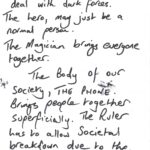 deal with dark forces.
The hero, may just be a
normal person.
The Magician brings everyone
together.
The Body of our
Society, THE PHONE.
Brings people together
superficially. The Ruler
has to allow Societal
breakdown due to the